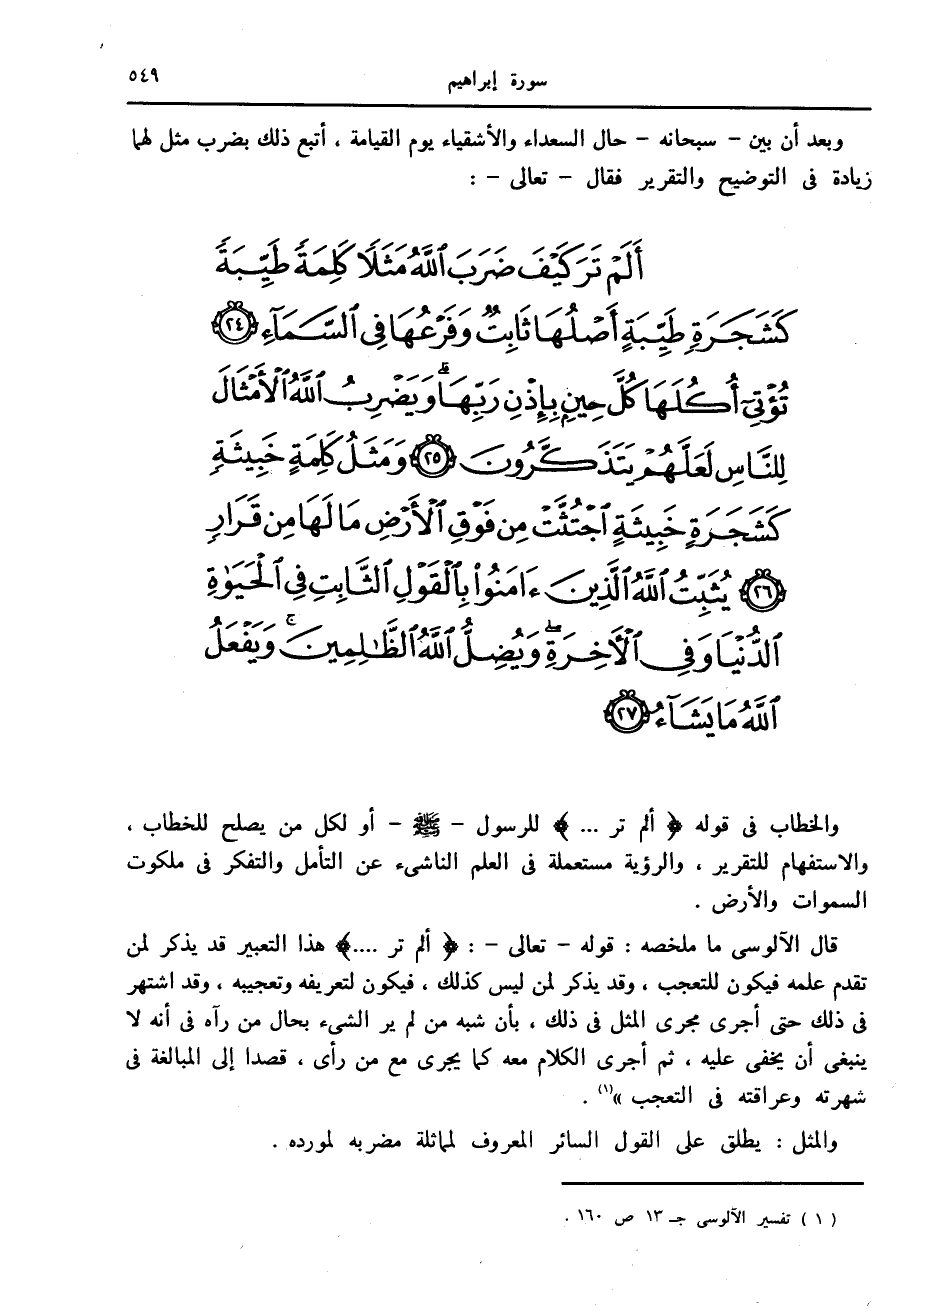 سورة إبراهيم ٥٤٩
وبعد أن بين – سبحانه – حال السعداء والأشقياء يوم القيامة ، أتبع ذلك بضرب مثل لهما
زيادة فى التوضيح والتقرير فقال – تعالى – :
أَلَمْ تَرَ كَيْفَ ضَرَبَ ٱللَّهُ مَثَلًا كَلِمَةً طَيِّبَةً
كَشَجَرَةٍ طَيِّبَةٍ أَصْلُهَا ثَابِتٌ وَفَرْعُهَا فِى ٱلسَّمَآءِ ٢٤
تُؤْتِىٓ أُكُلَهَا كُلَّ حِينٍۭ بِإِذْنِ رَبِّهَا ۗ وَيَضْرِبُ ٱللَّهُ ٱلْأَمْثَالَ
لِلنَّاسِ لَعَلَّهُمْ يَتَذَكَّرُونَ ٢٥ وَمَثَلُ كَلِمَةٍ خَبِيثَةٍ
كَشَجَرَةٍ خَبِيثَةٍ ٱجْتُثَّتْ مِن فَوْقِ ٱلْأَرْضِ مَا لَهَا مِن قَرَارٍ
٢٦ يُثَبِّتُ ٱللَّهُ ٱلَّذِينَ ءَامَنُوا۟ بِٱلْقَوْلِ ٱلثَّابِتِ فِى ٱلْحَيَوٰةِ
ٱلدُّنْيَا وَفِى ٱلْأَخِرَةِ ۖ وَيُضِلُّ ٱللَّهُ ٱلظَّٰلِمِينَ ۚ وَيَفْعَلُ
ٱللَّهُ مَا يَشَآءُ ٢٧
والخطاب فى قوله ﴿ ألم تر ... ﴾ للرسول – ﷺ – أو لكل من يصلح للخطاب ،
والاستفهام للتقرير ، والرؤية مستعملة فى العلم الناشىء عن التأمل والتفكر فى ملكوت
السموات والأرض .
قال الآلوسى ما ملخصه : قوله – تعالى – : ﴿ ألم تر .... ﴾ هذا التعبير قد يذكر لمن
تقدم علمه فيكون للتعجب ، وقد يذكر لمن ليس كذلك ، فيكون لتعريفه وتعجيبه ، وقد اشتهر
فى ذلك حتى أجرى مجرى المثل فى ذلك ، بأن شبه من لم ير الشىء بحال من رآه فى أنه لا
ينبغى أن يخفى عليه ، ثم أجرى الكلام معه كما يجرى مع من رأى ، قصدا إلى المبالغة فى
شهرته وعراقته فى التعجب »(١) .
والمثل : يطلق على القول السائر المعروف لمماثلة مضربه لمورده .
( ١ ) تفسير الآلوسى جـ ١٣ ص ١٦٠ .